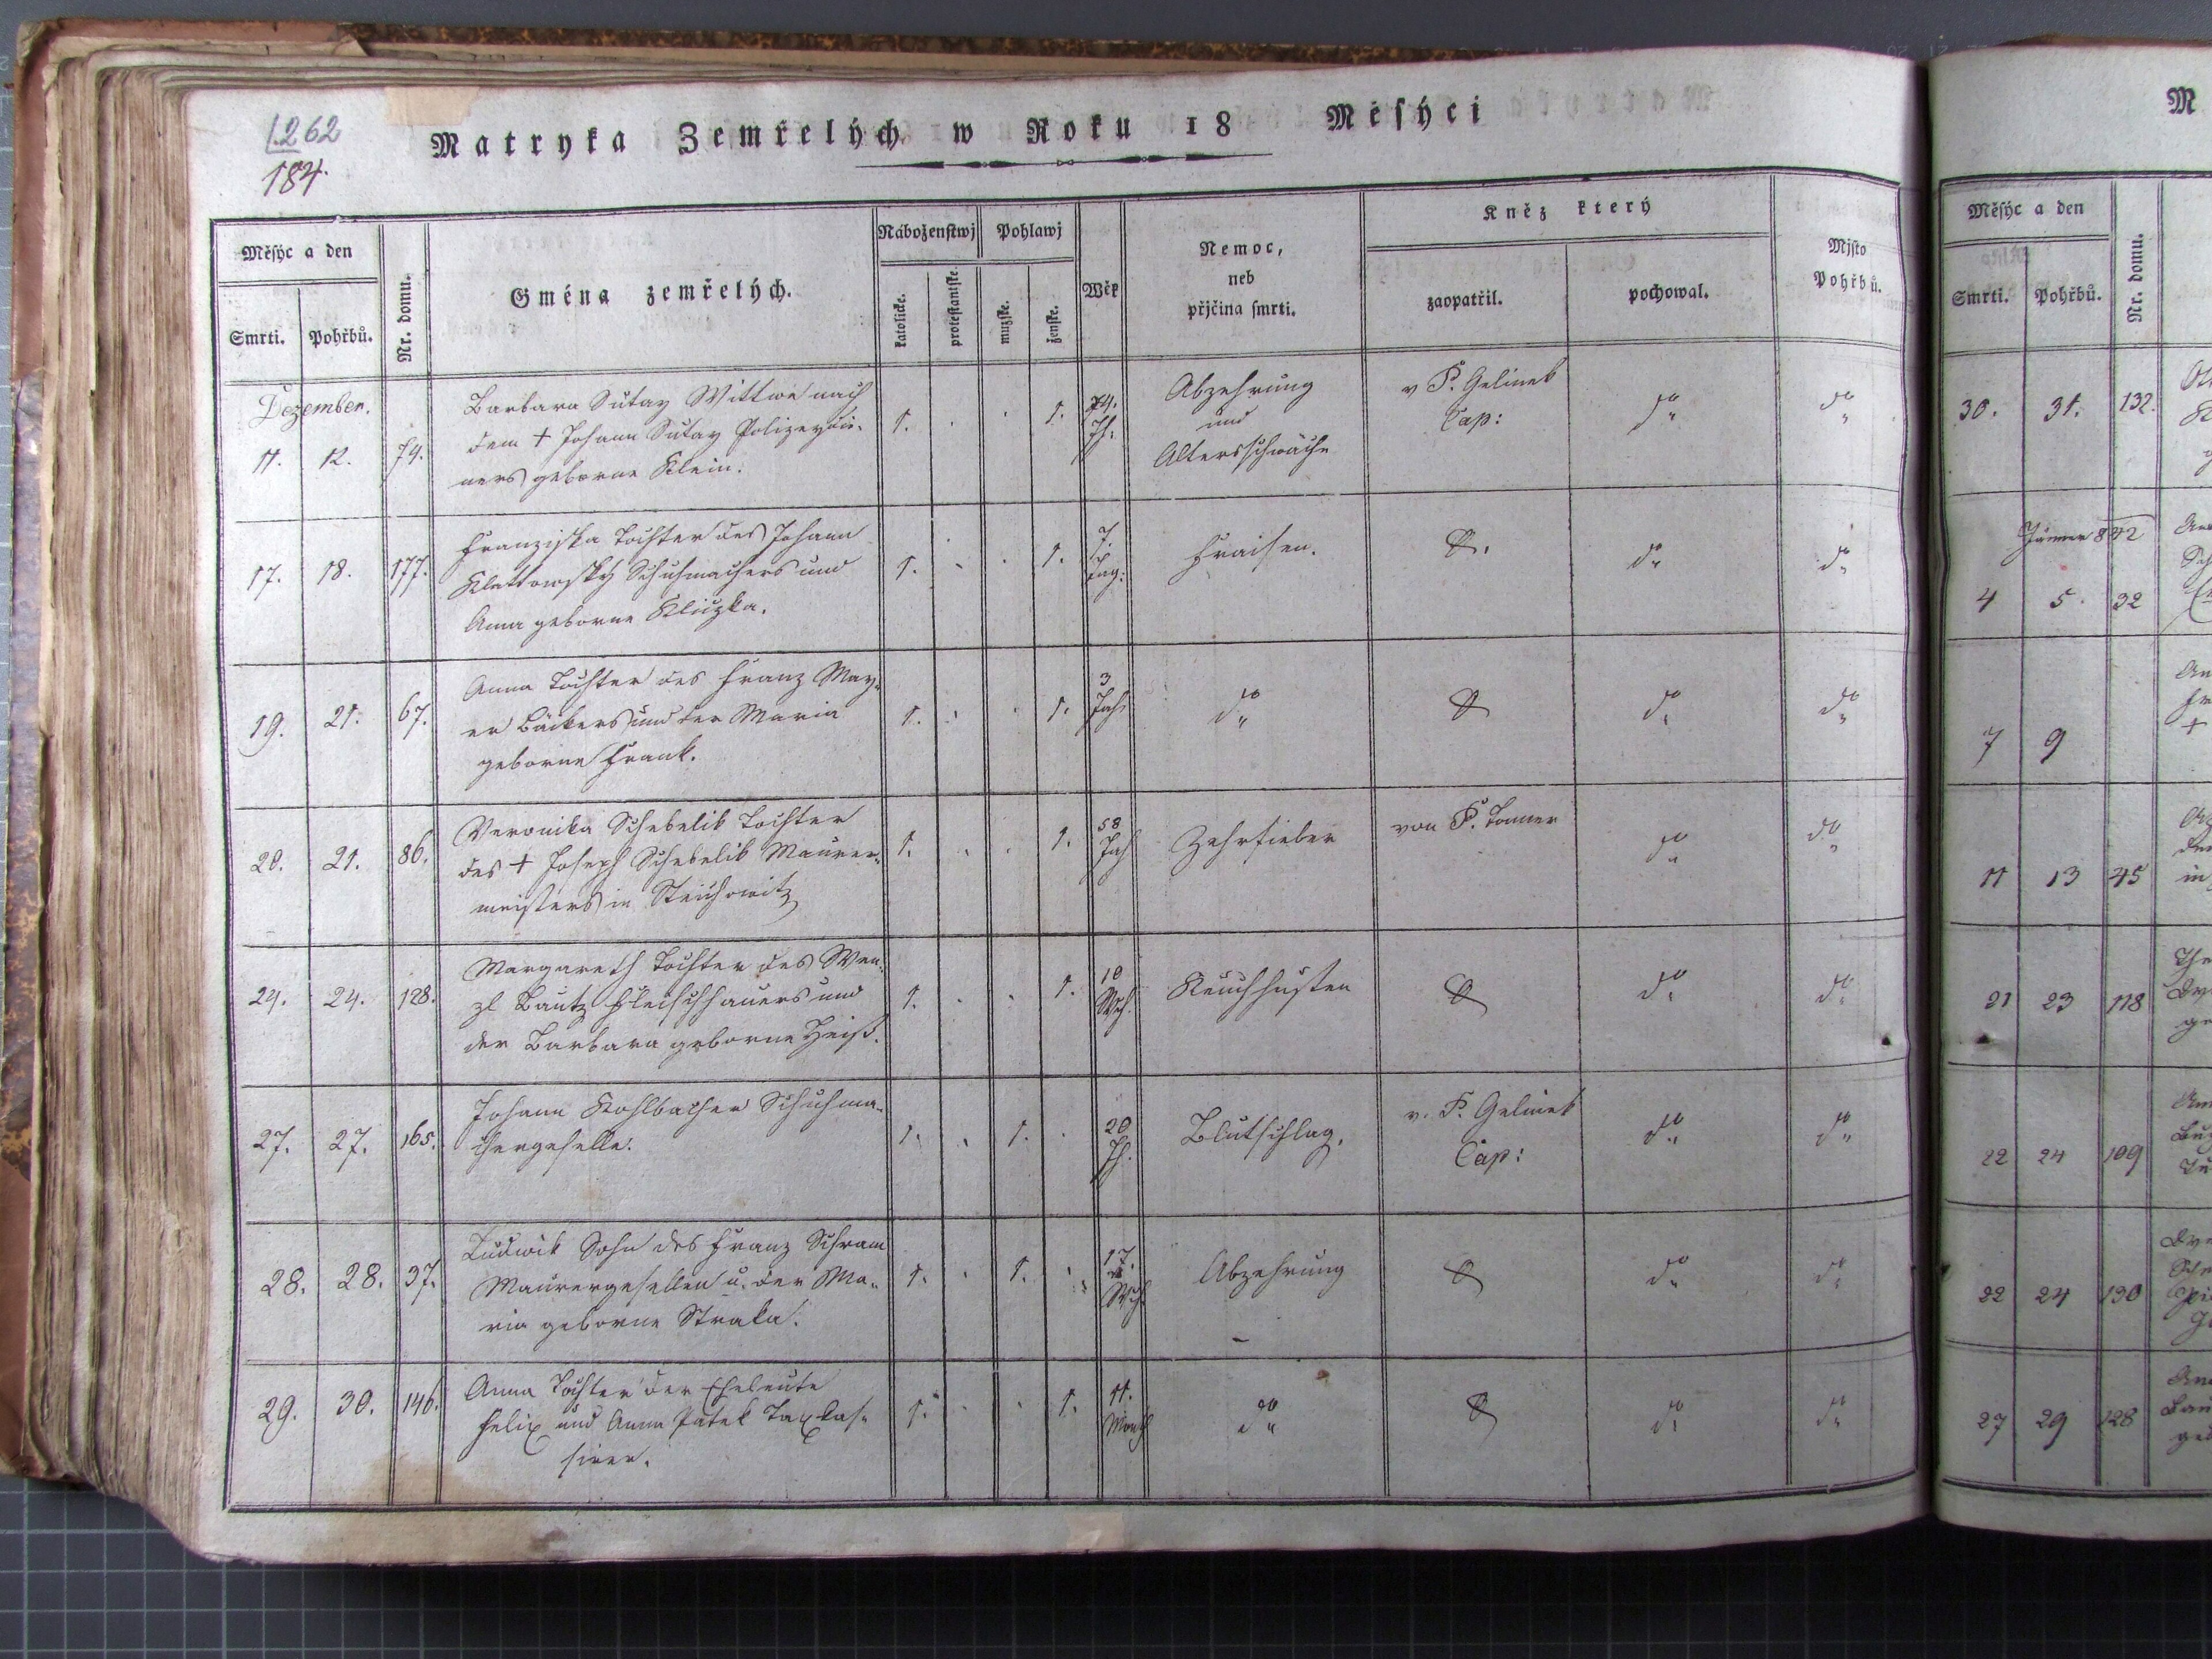 1.262
184.
Matryka Zemřelých w Roku 18 Měsýci
Měsýc a den
Smrti.
Pohřbů.
Nr. domu.
Gména zemřelých.
Náboženstwj
katolické.
protestantské.
Pohlawj
mužské.
ženské.
Wěk
Nemoc,
neb
přjčina smrti.
Kněz který
zaopatřil.
pochowal.
Mjsto
Pohřbů.
Dezember.
11. 12. 74.
Barbara Sutay Wittwe nach
dem + Johann Sutay Polizeydie-
ners geborne Klein.
1. . . 1. 74. Jh:
Abzehrung
und
Altersschwäche
v P. Gelinek
Cap:
do do
17. 18. 177.
Franziska Tochter des Johann
Klattowský Schuhmachers und
Anna geborne Kliczka.
1. . . 1. 7. Tag:
Fraisen.
do do
19. 21. 67.
Anna Tochter des Franz May-
er Bäckers und der Maria
geborne Frank.
1. . . 1. 3 Jah:
do do do
20. 21. 86.
Veronika Schebelik Tochter
des + Joseph Schebelik Maurer-
meisters in Steichowitz
1. . . 1. 58 Jah
Zehrfieber
von P. Tonner
do do
24. 24. 128.
Margareth Tochter des Wen-
zl Bautz Fleischhauers und
der Barbara geborne Heiß.
1. . . 1. 10 Wch.
Keuchhusten
do do
27. 27. 165.
Johann Kohlbacher Schuhma-
chergeselle.
1. . 1. . 20 Jh.
Blutschlag.
v. P. Gelinek
Cap:
do do
28. 28. 37.
Ludwik Sohn des Franz Schram
Maurergesellen u. der Ma-
ria geborne Straka.
1. . 1. . 17. Wch
Abzehrung
do do
29. 30. 146.
Anna Tochter der Eheleute
Felix und Anna Patek Taxkas-
sirer.
1. . . 1. 11. Mon
do do do
M
Měsýc a den
Smrti.
Pohřbů.
Nr. domu.
30. 31. 132.
Jänner 842
4 5. 32
7 9
11 13 45
21 23 118
22 24 109
22 24 130
27 29 128